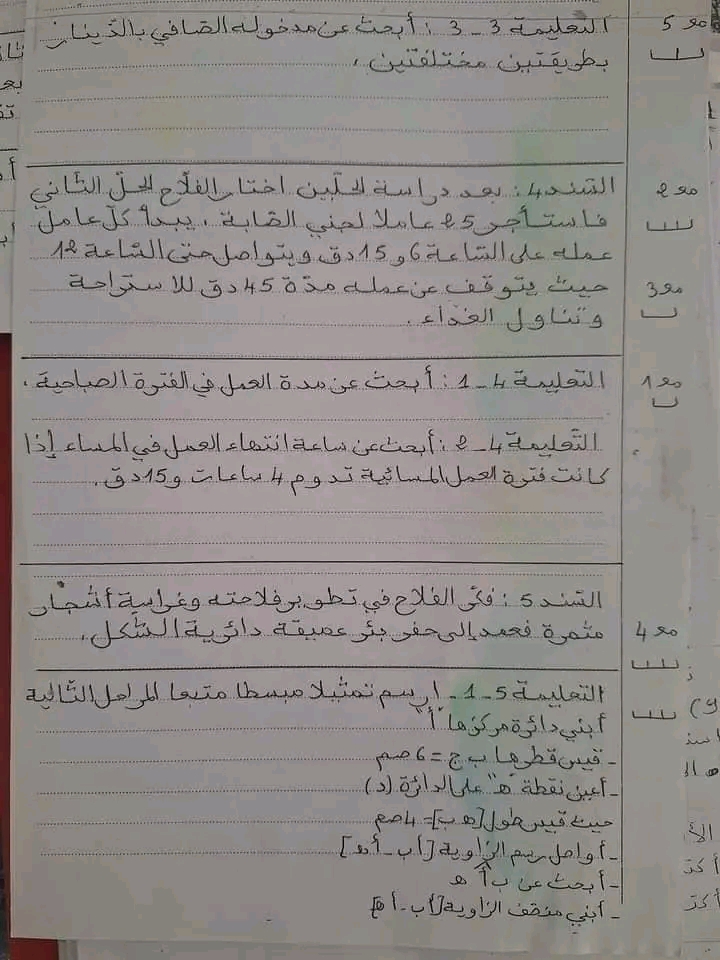 التعليمة 3 ـ 3 : أبحث عن مدخوله الصافي بالدينار
بطريقتين مختلفتين .
مع 5
السند 4 : بعد دراسة الحلين اختار الفلاح الحل الثاني
فاستأجر 25 عاملا لجني الصابة . يبدأ كل عامل
عمله على الساعة 6 و 15 دق ويتواصل حتى الساعة 12
حيث يتوقف عن عمله مدة 45 دق للاستراحة
وتناول الغداء .
مع 2
مع 3
التعليمة 4 ـ 1 : أبحث عن مدة العمل في الفترة الصباحية .
مع 1
التعليمة 4 ـ 2 : أبحث عن ساعة انتهاء العمل في المساء إذا
كانت فترة العمل المسائية تدوم 4 ساعات و 15 دق .
السند 5 : فكر الفلاح في تطوير فلاحته وغراسة أشجار
مثمرة فعمد إلى حفر بئر عميقة دائرية الشكل .
مع 4
التعليمة 5 ـ 1 ـ ارسم تمثيلا مبسطا متبعا المراحل التالية
أبني دائرة مركزها "أ"
ـ قيس قطرها ب ج = 6 صم
ـ أعين نقطة "ه" على الدائرة (د)
حيث قيس طول [ه ب] = 4 صم
ـ أواصل رسم الزاوية [أب ـ أه]
ـ أبحث عن بأه
ـ أبني منصف الزاوية [أب ـ أه]